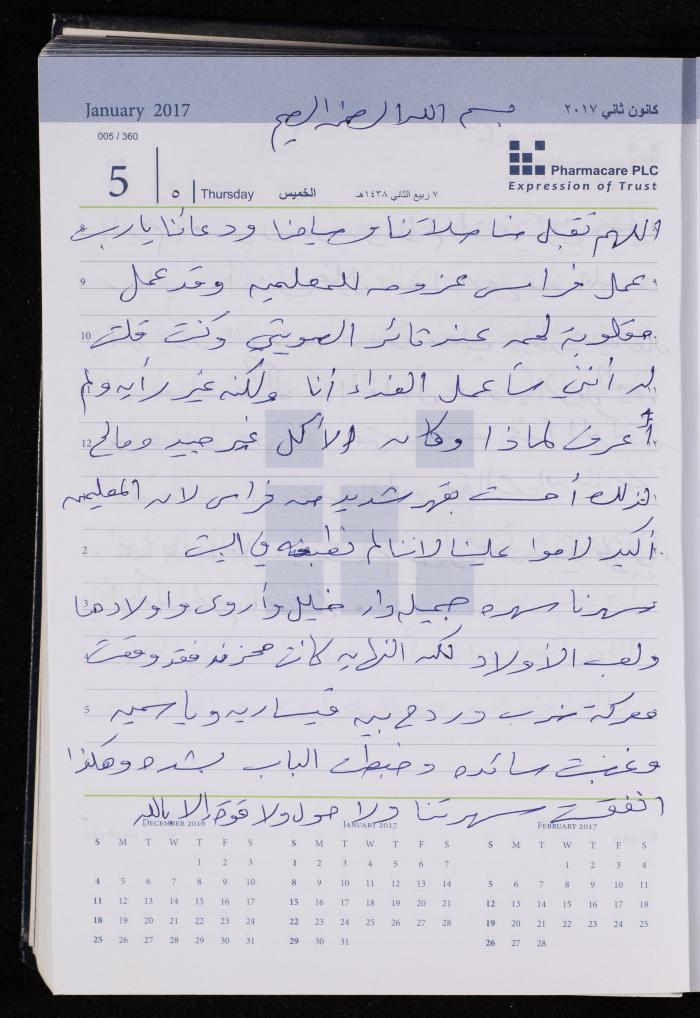 January 2017
بسم الله الرحمن الرحيم
كانون ثاني ٢٠١٧
005 / 360
5
٥
Thursday
الخميس
٧ ربيع الثاني ١٤٣٨هـ
Pharmacare PLC
Expression of Trust
اللهم تقبل منا صلاتنا وصيامنا ودعائنا يا رب
9 عمل فراس عزومه للمعلمين وقد عمل
10 مقلوبة لحمه عند قائر الصويتي وكنت قلت
له أنني سأعمل الغداء أنا ولكنه غير رأيه ولم
12 أعرف لماذا وكان الأكل غير جيد ومالح
لذلك أحسست بقهر شديد من فراس لان المعلمين
2 أكيد لاموا علينا لاننا لم نطبخه في البيت
3 سهرنا سهره جميله دار خليل وأروى واولادهما
ولعب الأولاد لكن النهايه كانت محزنه فقد وقعت
5 معركة ضرب وردح بين قيساريه وياسمين
وغضبت سائده وخبطت الباب بشده وهكذا
انفقت سهرتنا ولا حول ولا قوة إلا بالله
DECEMBER 2016
S M T W T F S
1 2 3
4 5 6 7 8 9 10
11 12 13 14 15 16 17
18 19 20 21 22 23 24
25 26 27 28 29 30 31
JANUARY 2017
S M T W T F S
1 2 3 4 5 6 7
8 9 10 11 12 13 14
15 16 17 18 19 20 21
22 23 24 25 26 27 28
29 30 31
FEBRUARY 2017
S M T W T F S
1 2 3 4
5 6 7 8 9 10 11
12 13 14 15 16 17 18
19 20 21 22 23 24 25
26 27 28